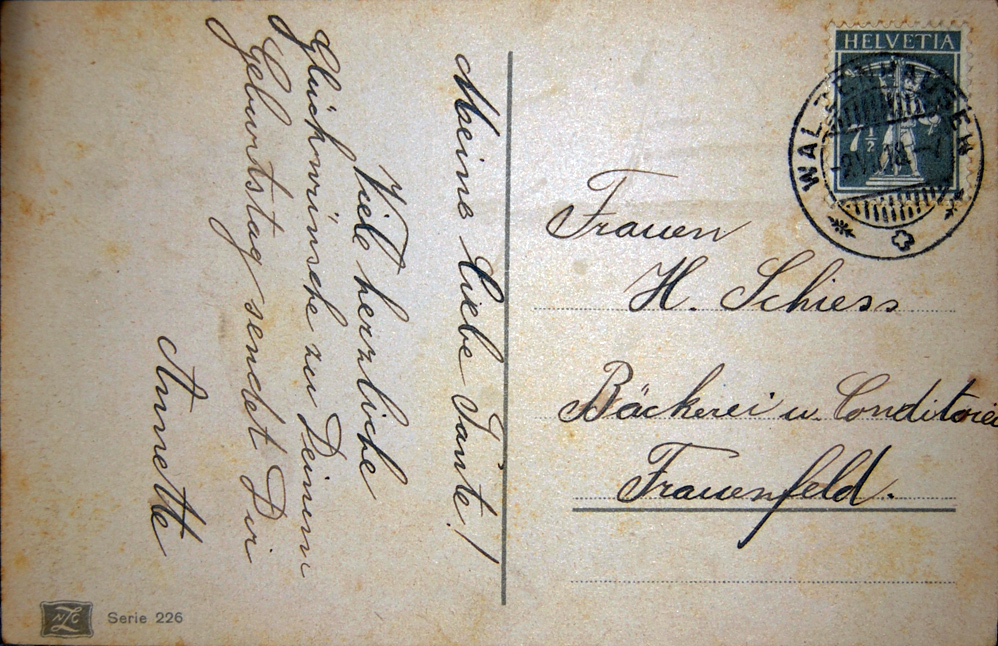 Meine liebe Tante!
Viele herzliche
Glückwünsche zu Deinem
Geburtstag sendet Dir
Annette
HELVETIA
7½
WALZENHAUSEN
Frauen
H. Schiess
Bäckerei u. Conditorei
Frauenfeld.
Serie 226